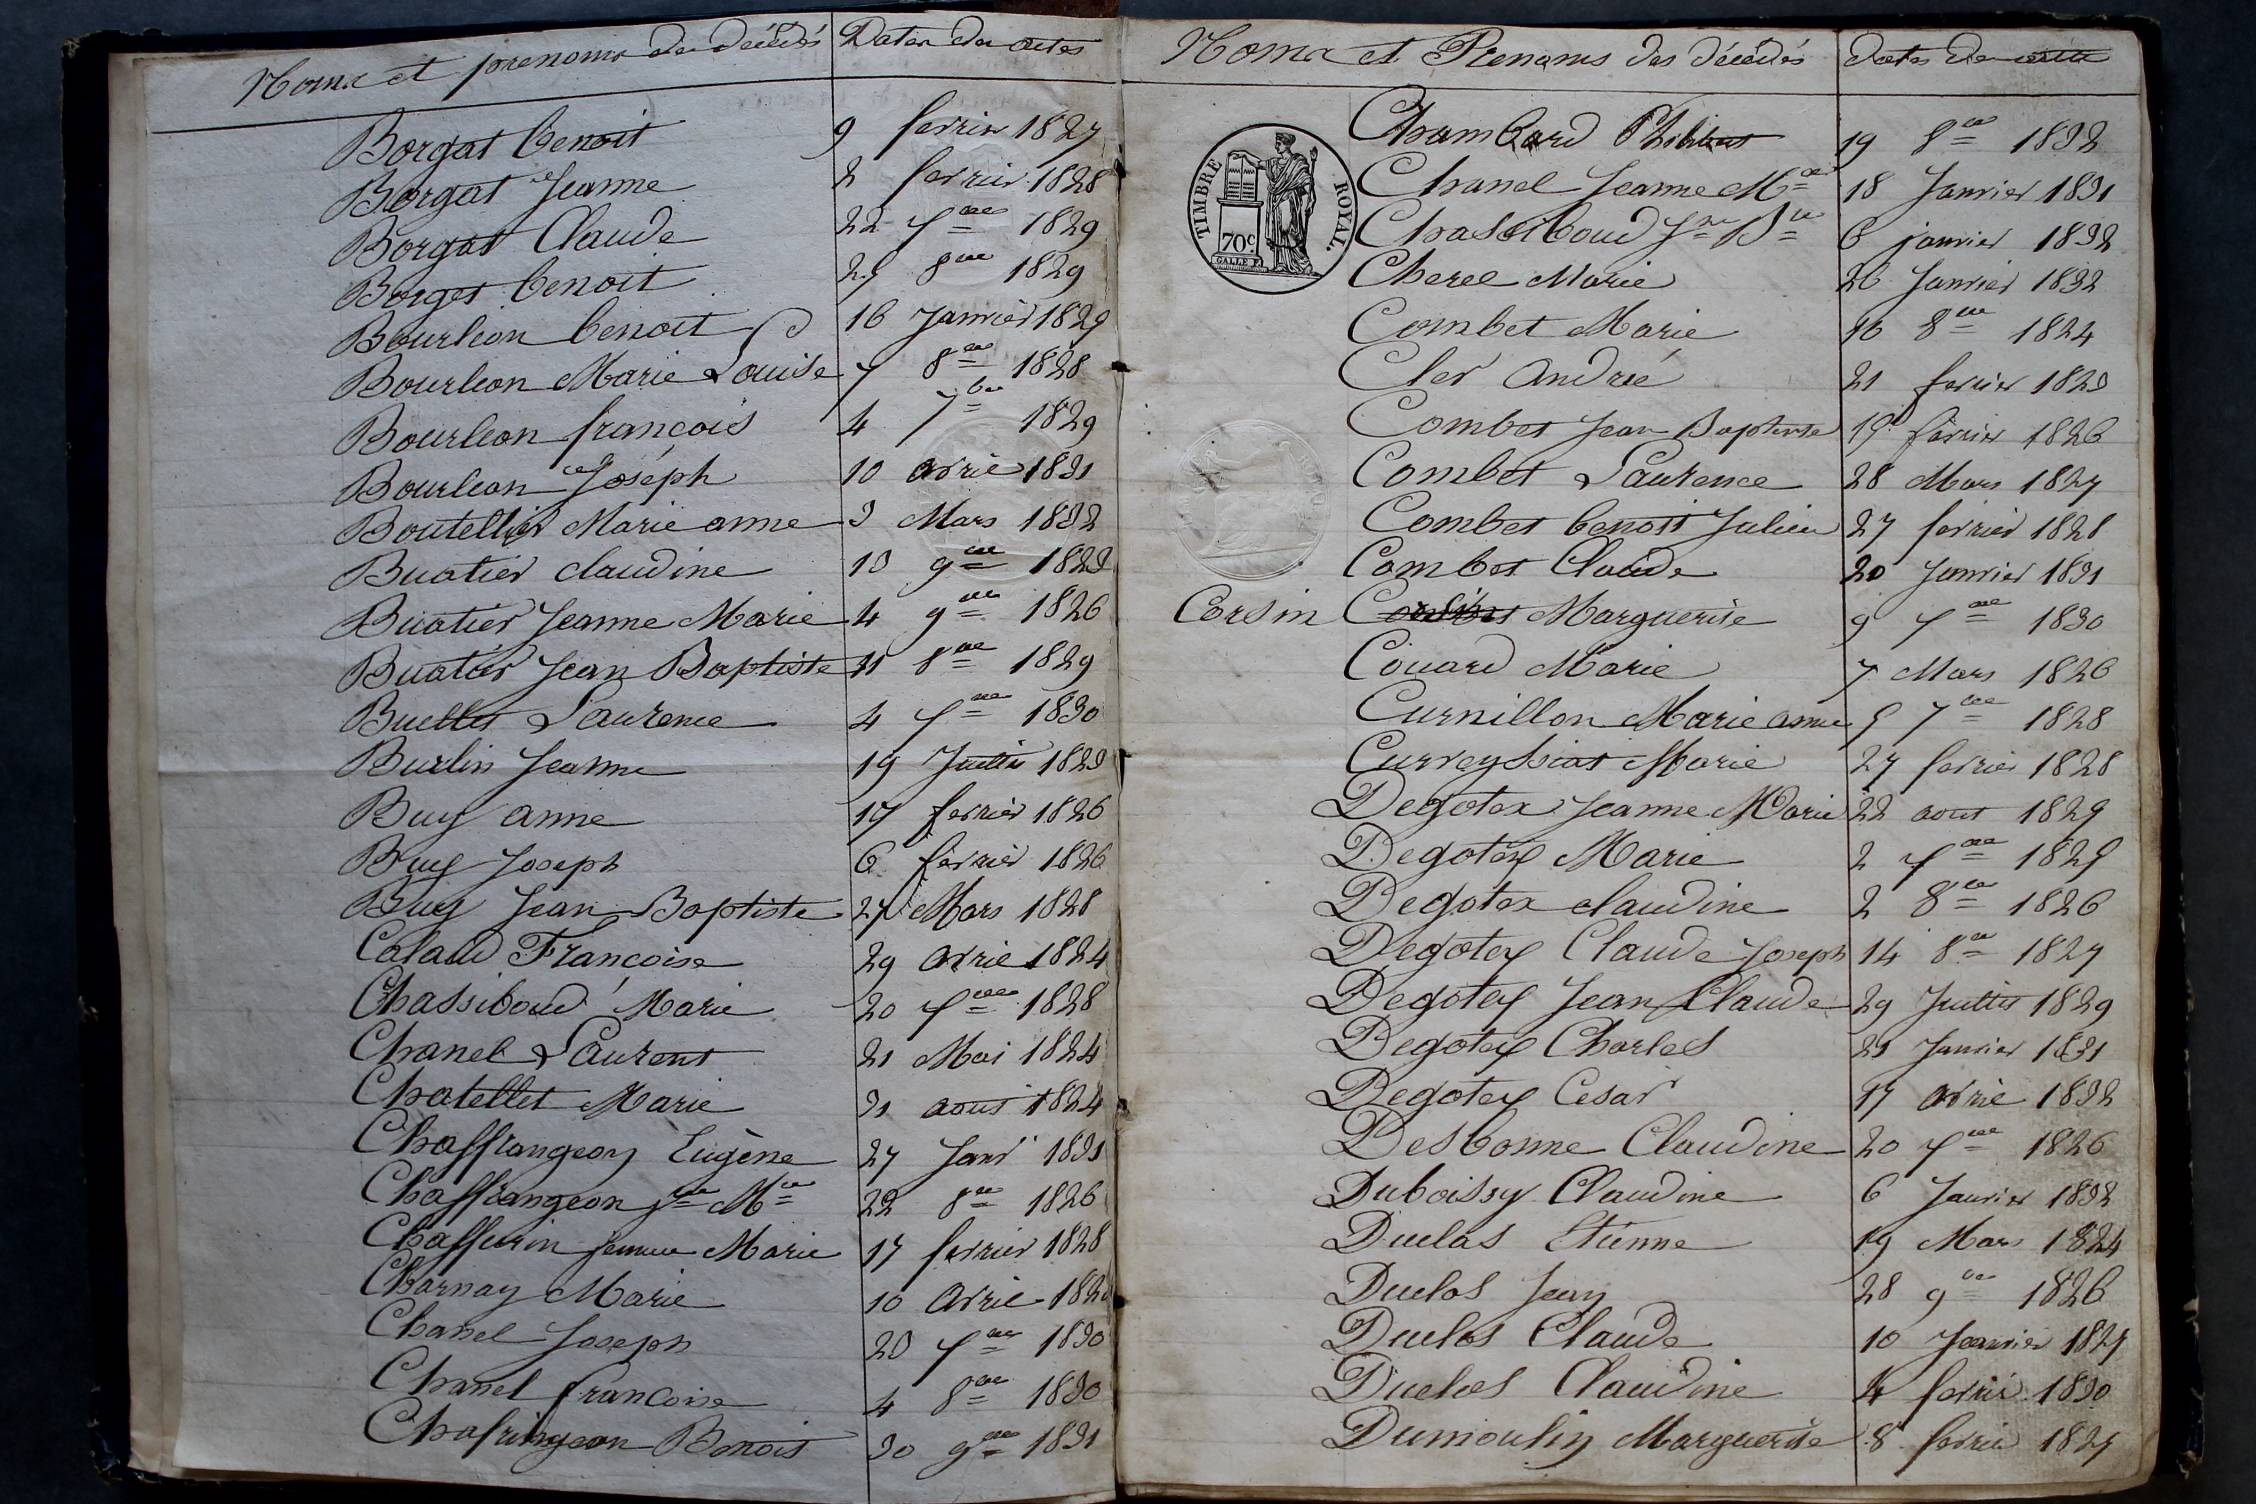 Noms et prenoms des décédés Dates des actes
Borgat benoit 9 fevrier 1827
Borgat Jeanne 2 fevrier 1828
Borgat Claude 22 Xbre 1829
Borget benoit 27 8bre 1829
Bourleon benoit 16 Janvier 1829
Bourleon Marie Louise 7 8bre 1828
Bourleon françois 4 7bre 1829
Bourleon Joséph 10 avril 1831
Boutellier Marie anne 3 Mars 1832
Buatier claudine 13 9bre 1823
Buatier Jeanne Marie 4 9bre 1826
Buatier Jean Baptiste 21 8bre 1829
Buellet Laurence 4 Xbre 1830
Burlin Jeanne 19 Juillet 1823
Buy anne 17 fevrier 1826
Buy Joseph 6 février 1826
Buy Jean Baptiste 27 Mars 1828
Calaud Françoise 29 avril 1824
Chassiboud Marie 20 Xbre 1828
Chanel Laurent 21 Mai 1824
Chatellet Marie 31 aout 1824
Chaffrangeon Eugène 27 Janv 1831
Chaffrangeon Jne Mie 22 8bre 1826
Chaffurin femme Marie 17 fevrier 1828
Charnay Marie 10 avril
Chanel Joseph 20 Xbre 1830
Chanel francoise 4 8bre 1830
Chafringeon Benoit 30 9bre 1831
Noms et Prenoms des décédés dates des actes
TIMBRE ROYAL.
70c
GALLE F.
Chambard Philibert 19 8bre 1832
Chanel Jeanne Mie 18 Janvier 1831
Chassiboud Jn Bte 6 janvier 1832
Cherel Marie 26 Janvier 1832
Combet Marie 16 8bre 1824
Cler André 21 fevrier 1823
Combet Jean Baptiste 19 février 1826
Combet Laurence 28 Mars 1827
Combet benoit Julien 27 fevrier 1828
Combet Claude 20 Janvier 1831
Corsin Marguerite 9 Xbre 1830
Couard Marie 7 Mars 1826
Curnillon Marie anne 9 7bre 1828
Curveyssiat Marie 27 fevrier 1828
Degotex Jeanne Marie 22 aout 1829
Degotex Marie 2 Xbre 1829
Degotex claudine 2 8bre 1826
Degotex Claude Joseph 14 8bre 1827
Degotex Jean Claude 29 Juillet 1829
Degotex Charles 21 Janvier 1831
Degotex Cesar 17 avril 1832
Desbonne Claudine 20 Xbre 1826
Duboissy Claudine 6 Janvier 1832
Duclas Etienne 19 Mars 1824
Duclos Jean 28 9bre 1826
Duclos Claude 10 Janvier 1827
Duclos Claudine 4 fevrier 1830
Dumoulin Marguerite 8 fevrier 1827